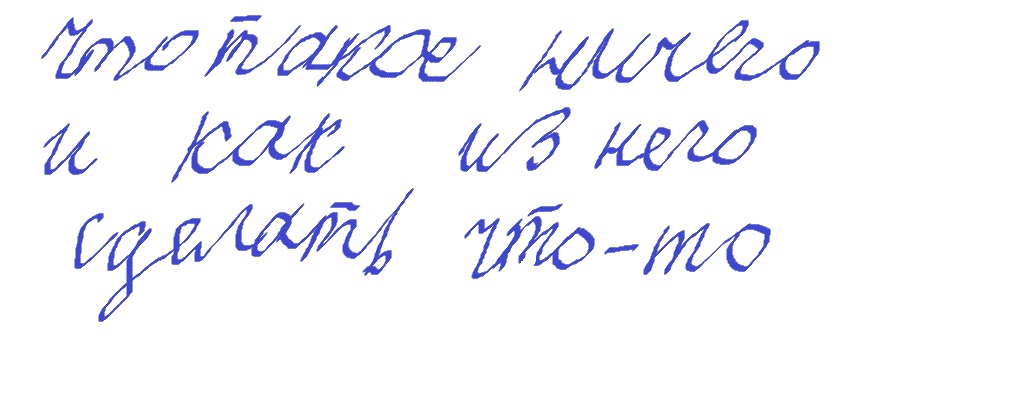 что такое ничего
и как из него
сделать что-то